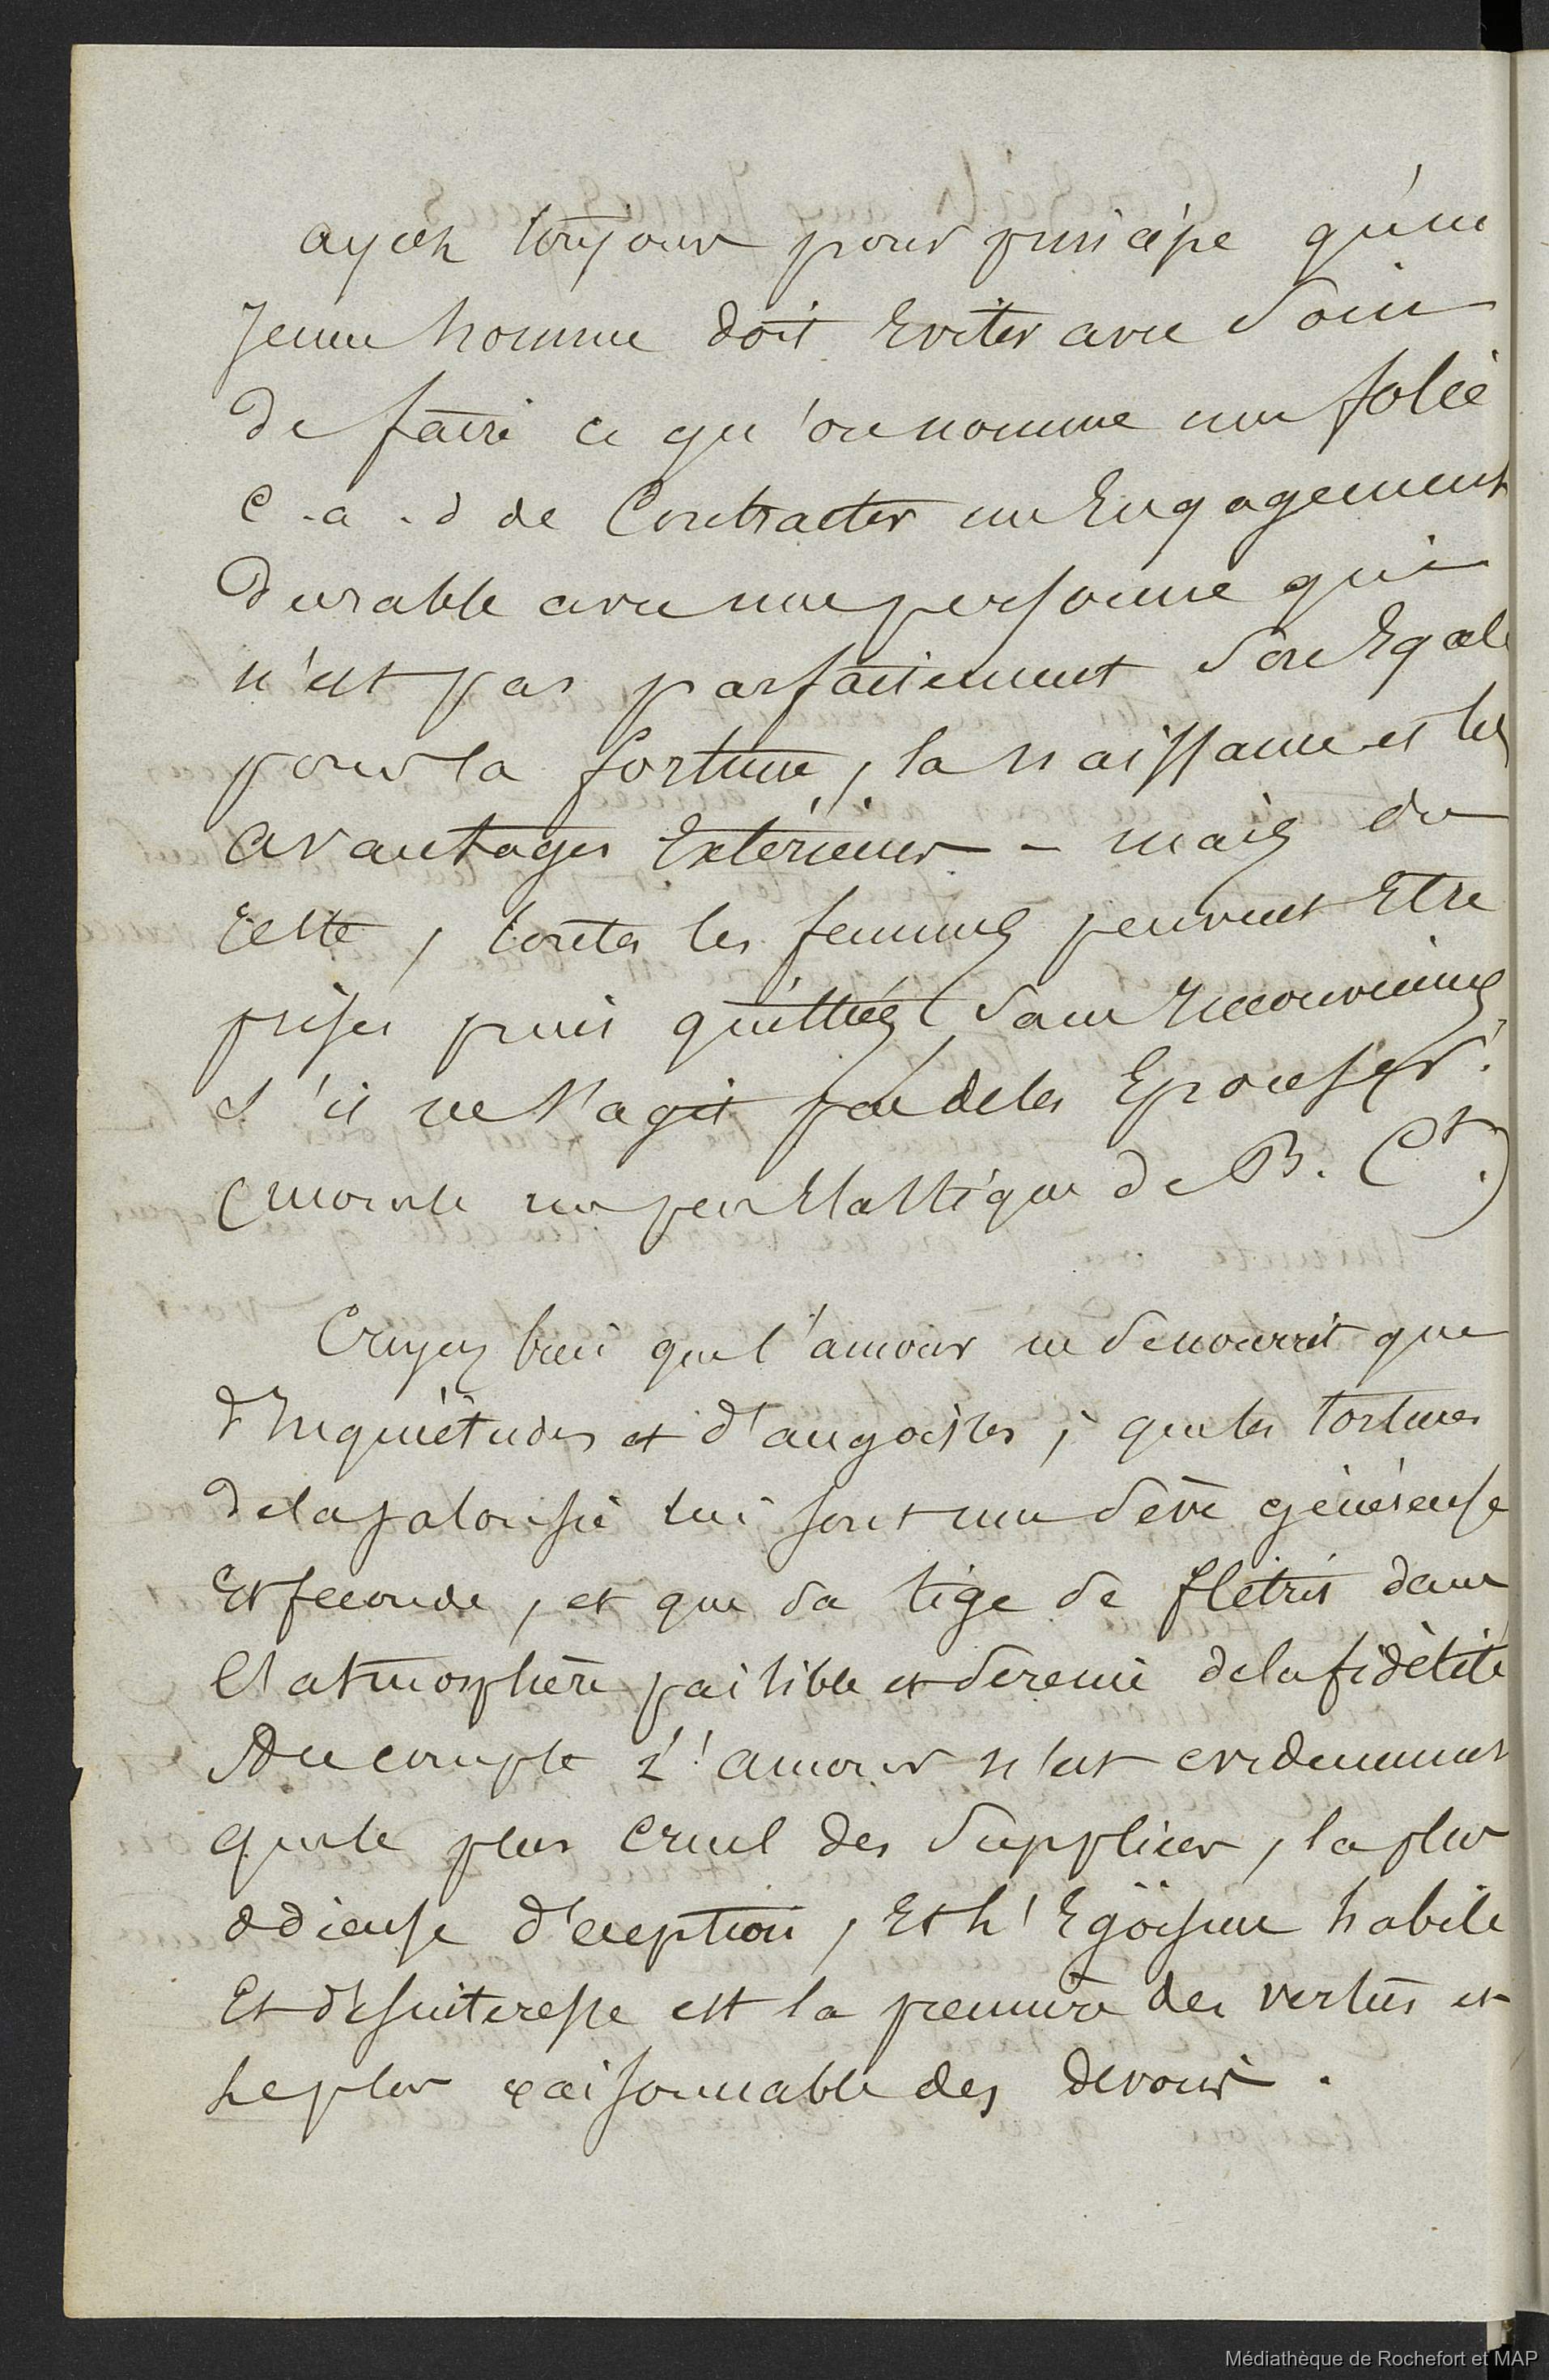 ayez toujours pour principe qu'un
jeune homme doit Eviter avec soin
de faire ce qu'on nomme une folie
c.a.d de Contracter un Engagement
Durable avec une personne qui
n'est pas parfaitement son Egale
pour la fortune, la naissance et les
avantages Extérieurs - mais du
reste, toutes les femmes peuvent Etre
prises puis quittées sans inconvenient
s'il ne s'agit pas de les Epouser.
(morale un peu Elastique de B. Ct.)
Croyez bien que l'amour ne se nourrit que
d'Inquiétudes et d'angoisses ; que les tortures
de la jalousie lui sont une sève généreuse
Et feconde, et que sa tige se flétrit dans
l'atmosphère paisible et sereine de la fidélité
Au compte L'amour n'est evidemment
que le plus cruel des supplices, la plus
odieuse déception, Et L'Egoïsme habile
Et désintéressé est la première des vertus et
Le plus raisonnable des devoirs.
Médiathèque de Rochefort et MAP